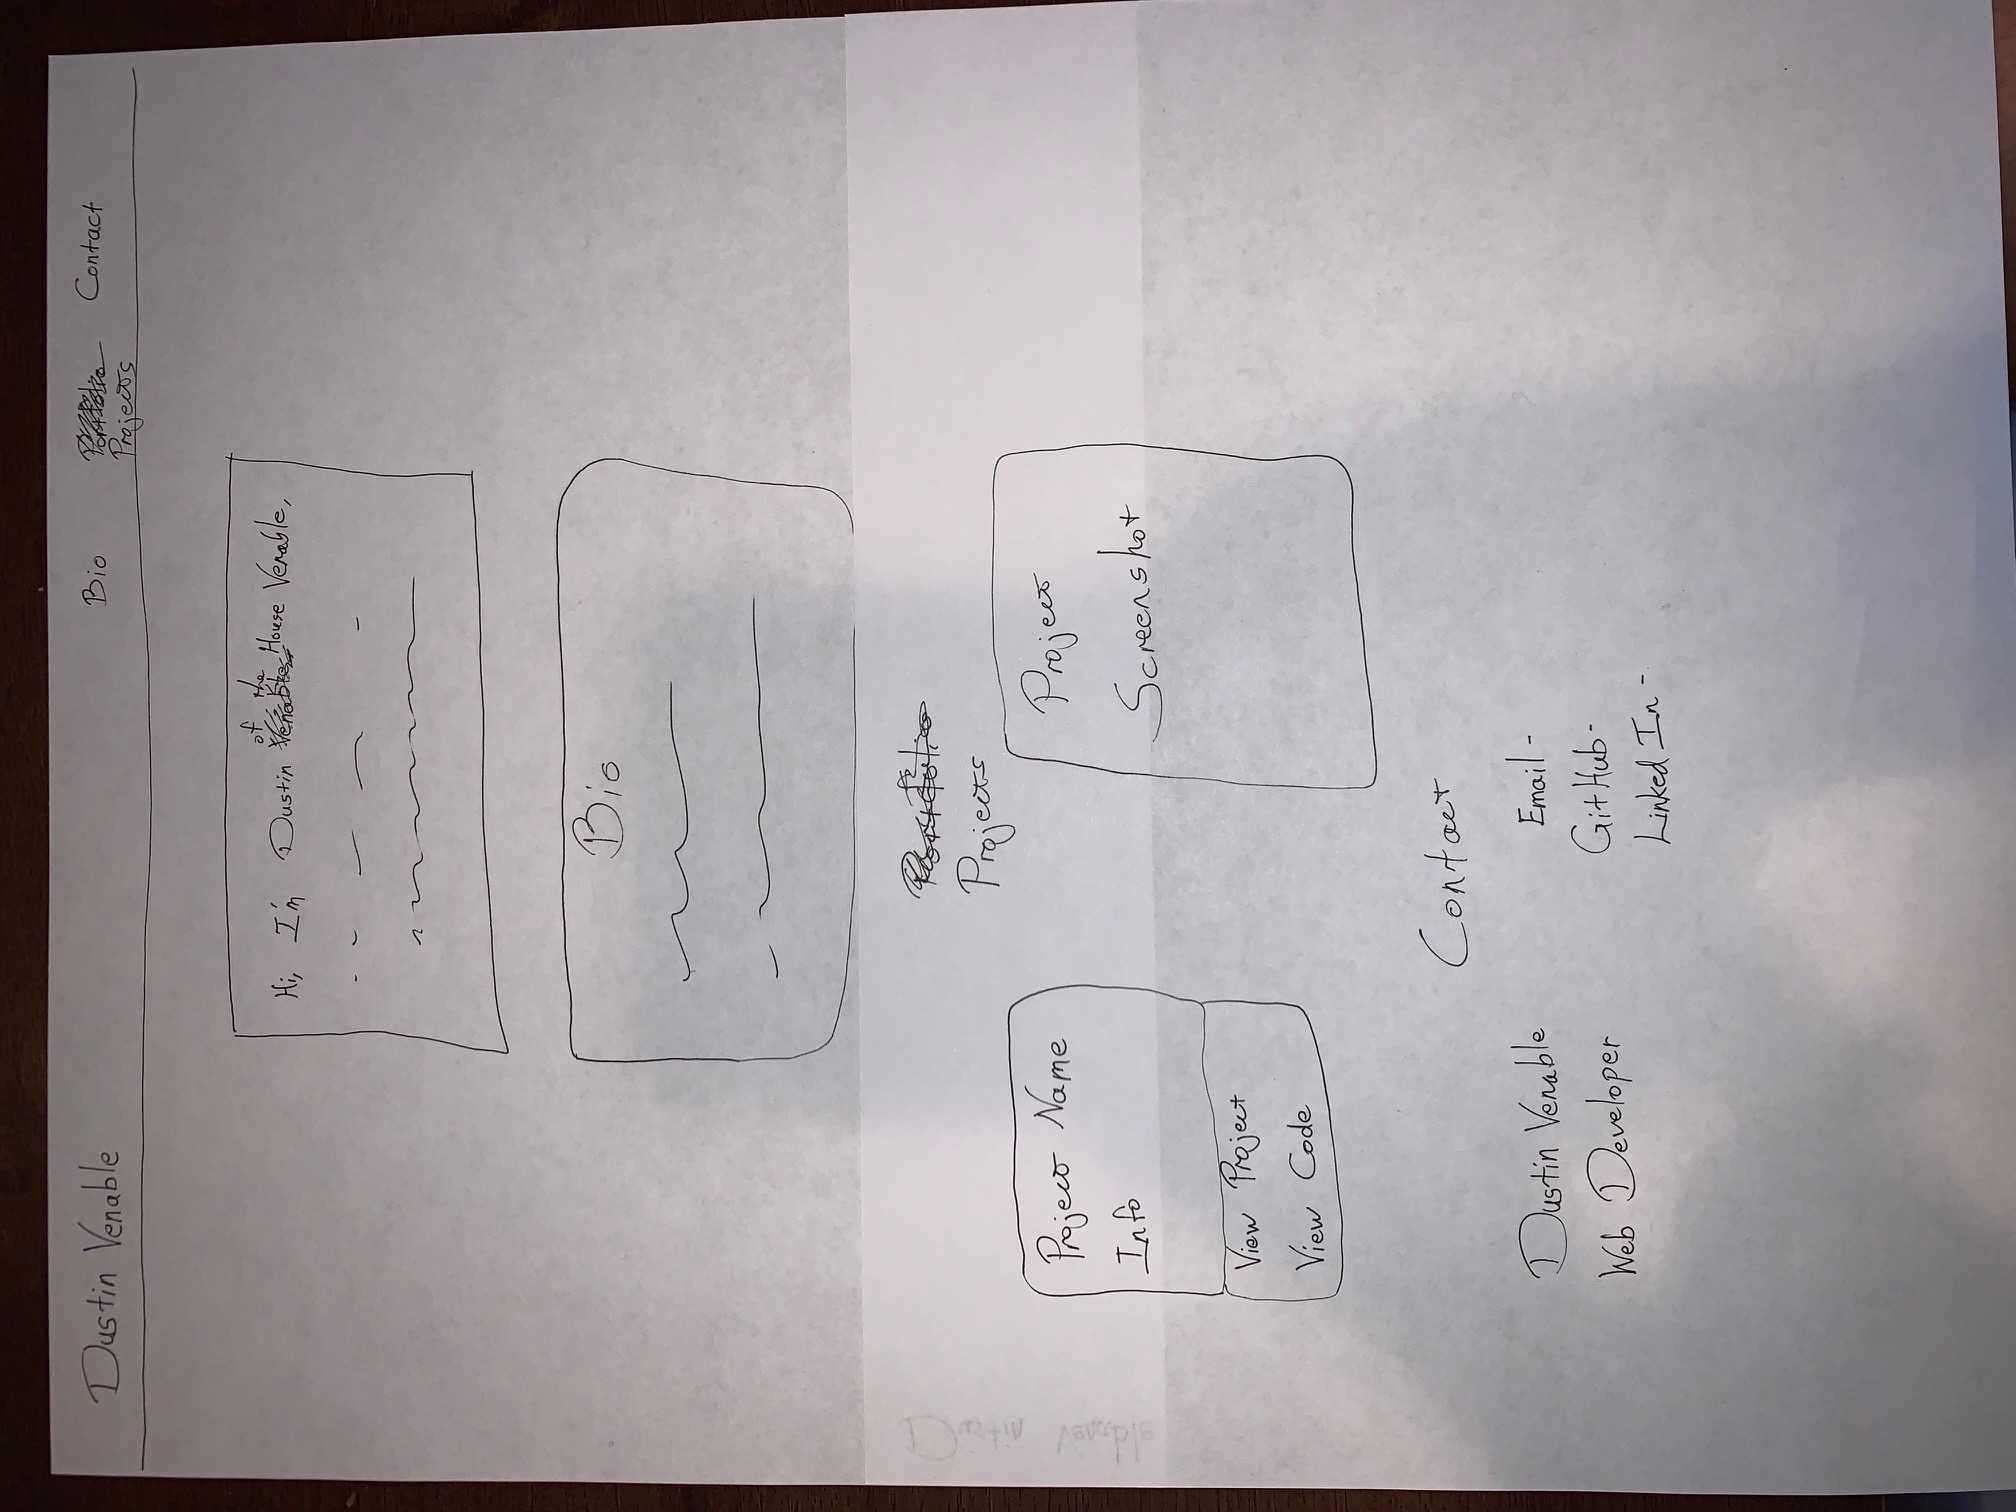 Dustin Venable
Bio
Portfolio
Projects
Contact
of the
Hi, I'm Dustin Venable House Venable,
Bio
Portfolio
Projects
Project Name
Info
View Project
View Code
Project
Screenshot
Contact
Dustin Venable
Web Developer
Email -
GitHub -
Linked In -
Dustin Venable